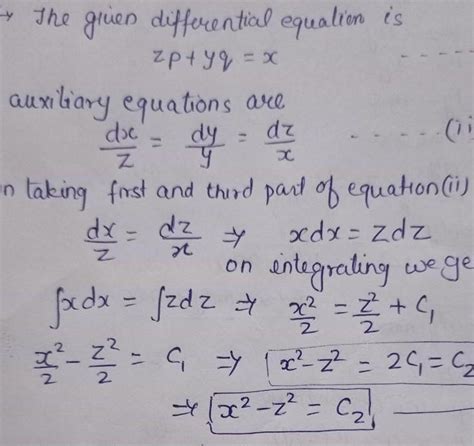 → The given differential equation is
zp+yq = x -----
auxiliary equations are
dx/z = dy/y = dz/x ----- (ii
n taking first and third part of equation(ii)
dx/z = dz/x ⇒ xdx = zdz
on integrating we ge
∫xdx = ∫zdz ⇒ x²/2 = z²/2 + C₁
x²/2 - z²/2 = C₁ ⇒ x²-z² = 2C₁ = C₂
⇒ x²-z² = C₂